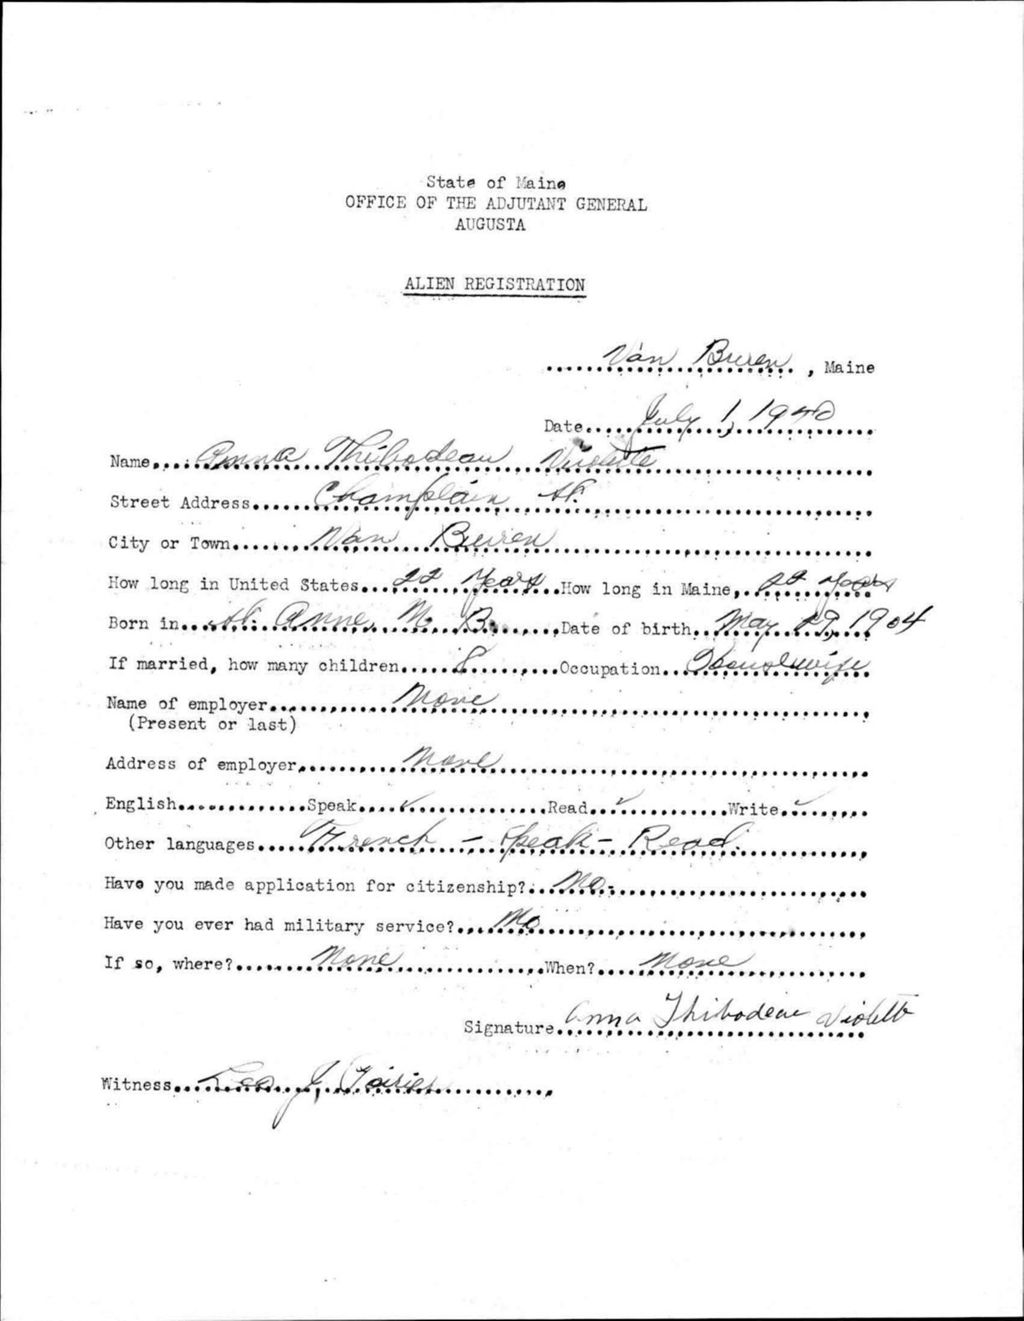 State of Maine
OFFICE OF THE ADJUTANT GENERAL
AUGUSTA
ALIEN REGISTRATION
Van Buren, Maine
Date July 1, 1940
Name Anna Thibodeau Violette
Street Address Champlain St.
City or Town Van Buren
How long in United States 22 Years How long in Maine, 22 Years
Born in St. Anne, N. B. Date of birth May 29, 1904
If married, how many children 8 Occupation Housewife
Name of employer None
(Present or last)
Address of employer None
English Speak ✓ Read ✓ Write ✓
Other languages French - Speak - Read.
Have you made application for citizenship? No.
Have you ever had military service? No
If so, where? None When? None
Signature Anna Thibodeau Violette
Witness Leo J.